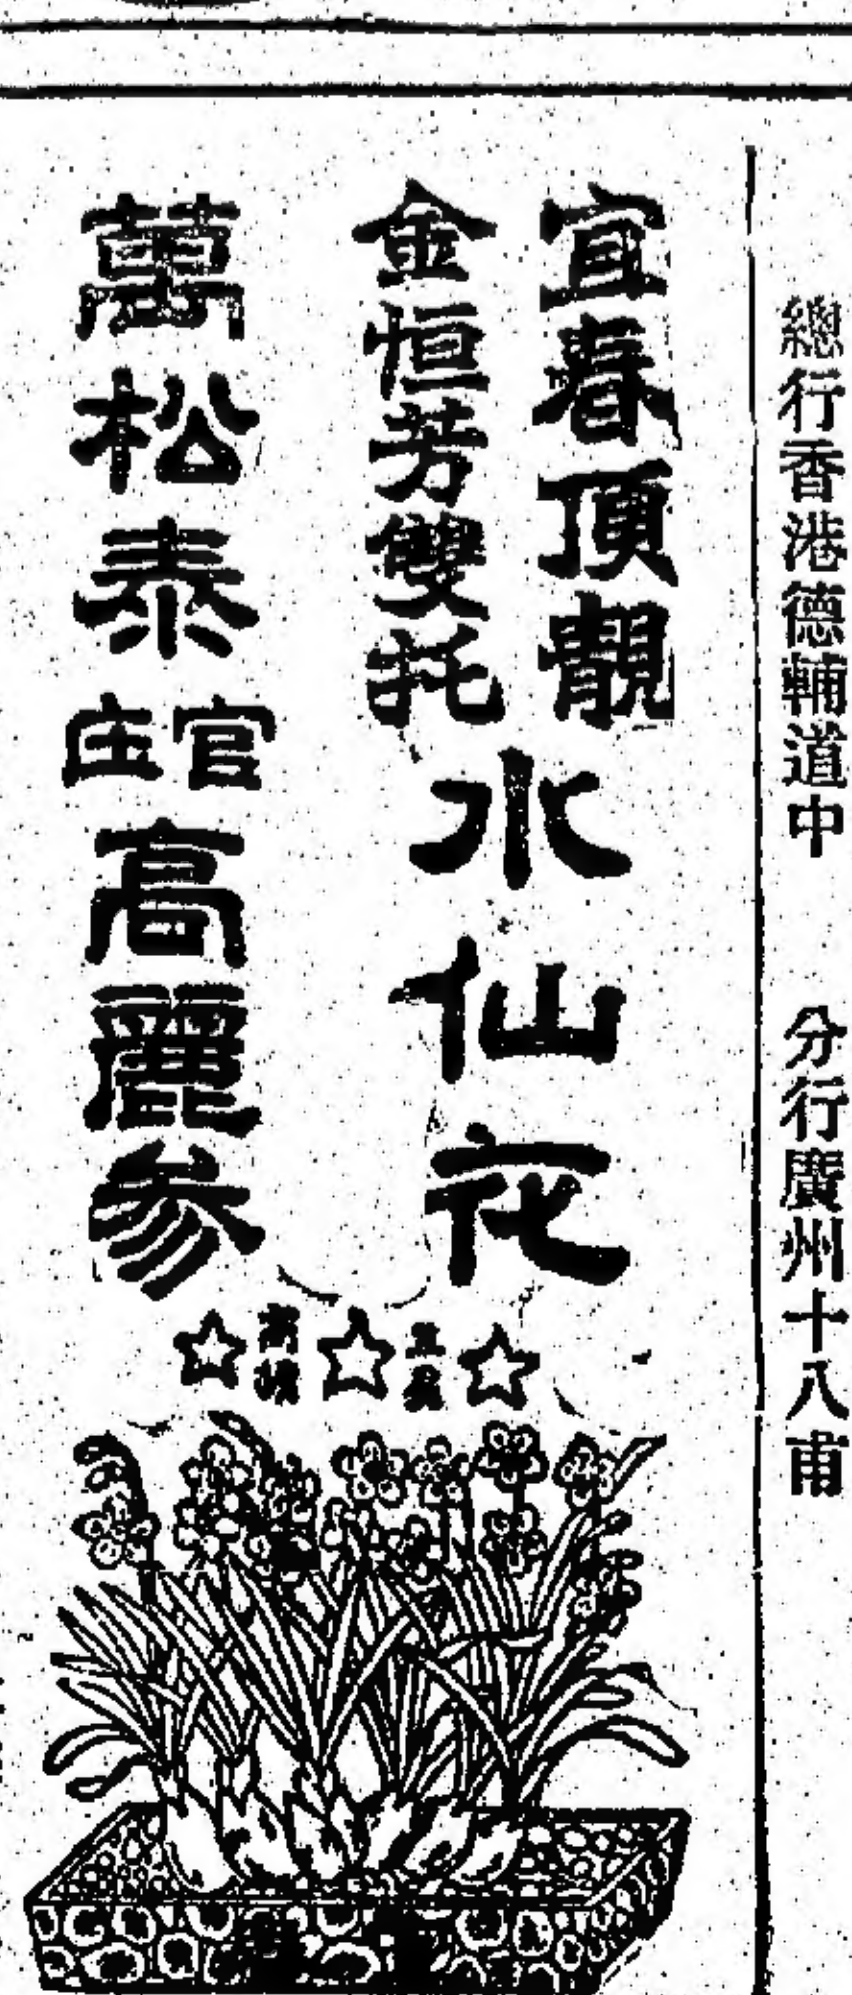 總行香港德輔道中 分行廣州十八甫
宜春頂靚
金恒芳雙托
水仙花
萬松泰官庄高麗參